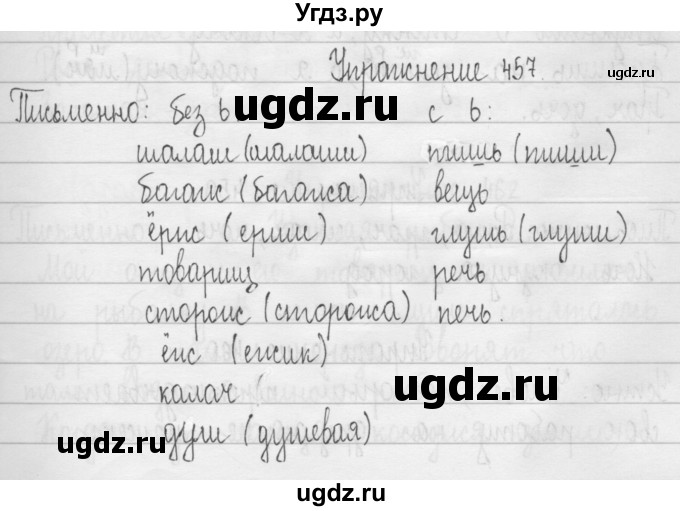 Угдз.ру
Упражнение 457.
ugdz.ru
Письменно: без ь с ь:
ugdz.ru
шалаш (шалаши) тишь (тиши)
багаж (багажа) вещь
ёрш (ерши) глушь (глуши)
товарищ речь
сторож (сторожа) печь.
ёж (ежик)
ugdz.ru
калач
ugdz.ru
душ (душевая)
ugdz.ru